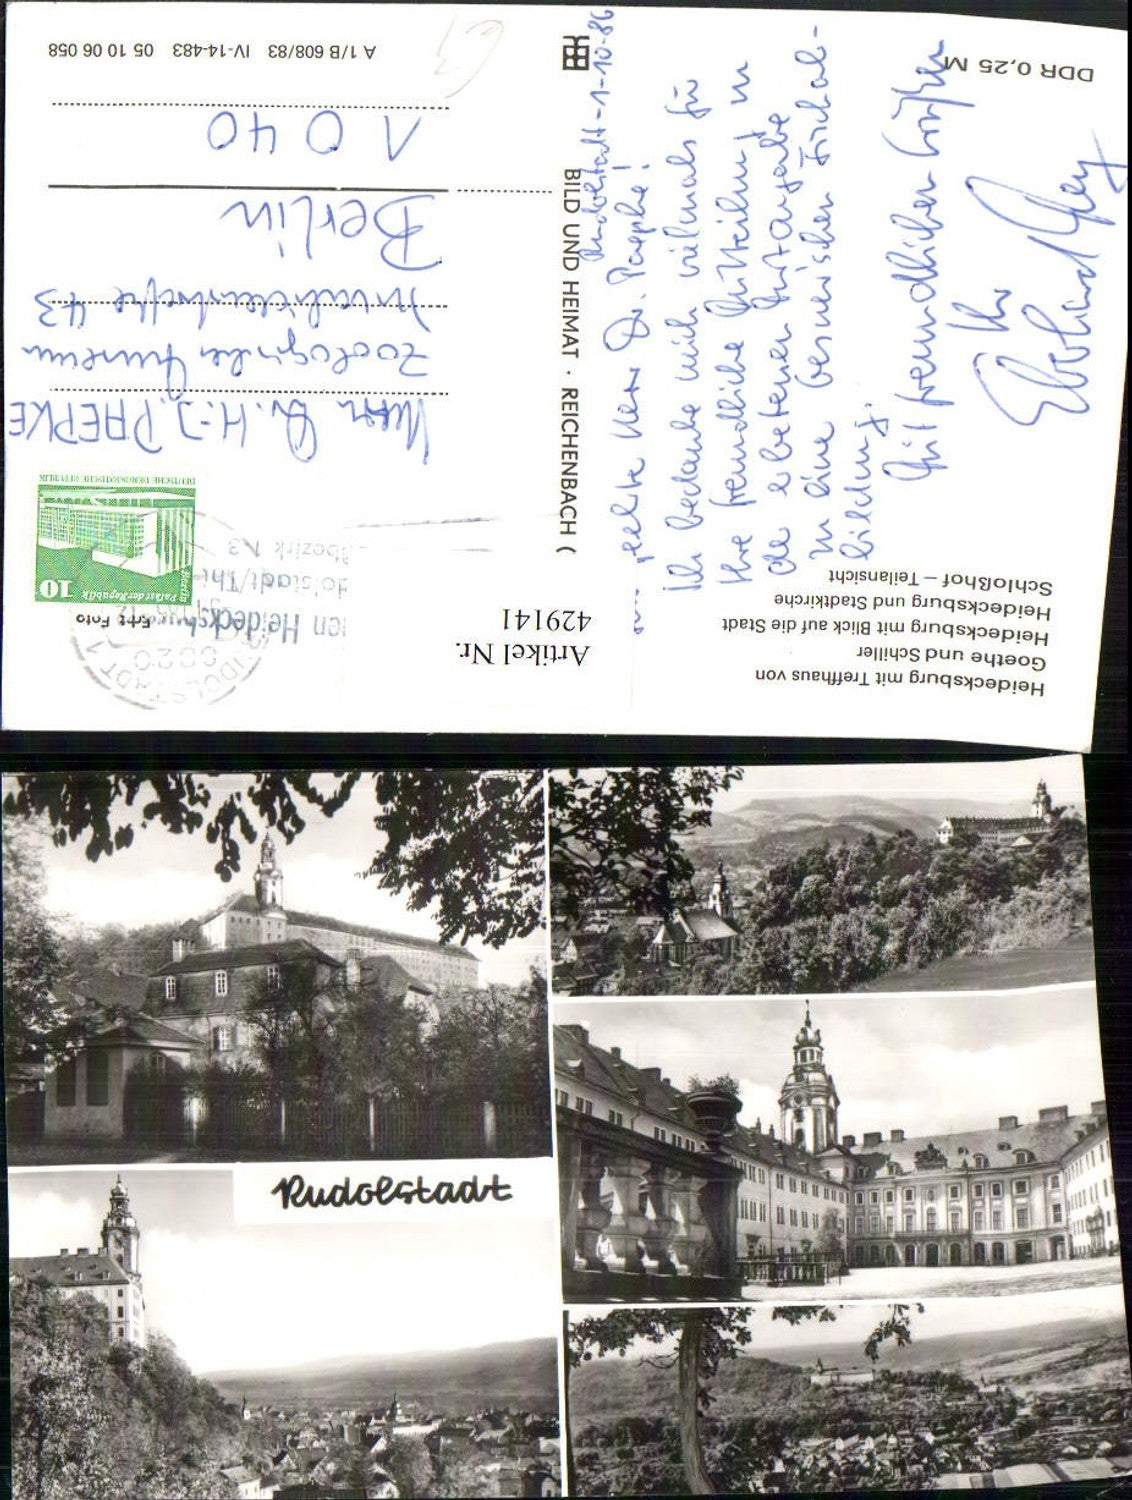 Heidecksburg mit Treffhaus von
Goethe und Schiller
Heidecksburg mit Blick auf die Stadt
Heidecksburg und Stadtkirche
Schloßhof – Teilansicht
Artikel Nr.
429141
Rudolstadt-1-10-86
geehrter Herr Dr. Paepke!
Ich bedanke mich vielmals für
Ihre freundliche Mitteilung u
die erbetenen
in eine
bildung.
Mit freundlichen Grüßen
Ihr
Eberhard
DDR 0,25 M
BILD UND HEIMAT · REICHENBACH (
Echt Foto
Berlin
Palast der Republik
10
DEUTSCHE DEMOKRATISCHE REPUBLIK
DOLSTADT 1
6820
en Heidecksburg
dolstadt/Thür
bezirk
Herrn Dr. H.-J. PAEPKE
Zoologisches Museum
Invalidenstraße 43
Berlin
1040
A 1/B 608/83 IV-14-483 05 10 06 058
Rudolstadt